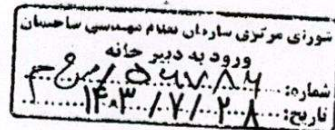 شورای مرکزی سازمان نظام مهندسی ساختمان
ورود به دبیر خانه
شماره: ۵۶۷۸۶ /ش م
تاریخ: ۱۴۰۳/۷/۲۸